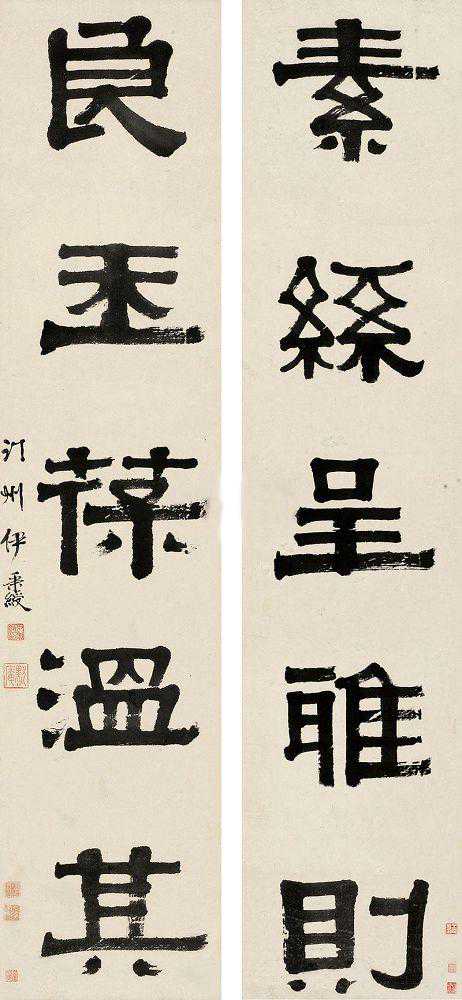 素絲呈雅則
良玉葆溫其
汀州伊秉綬